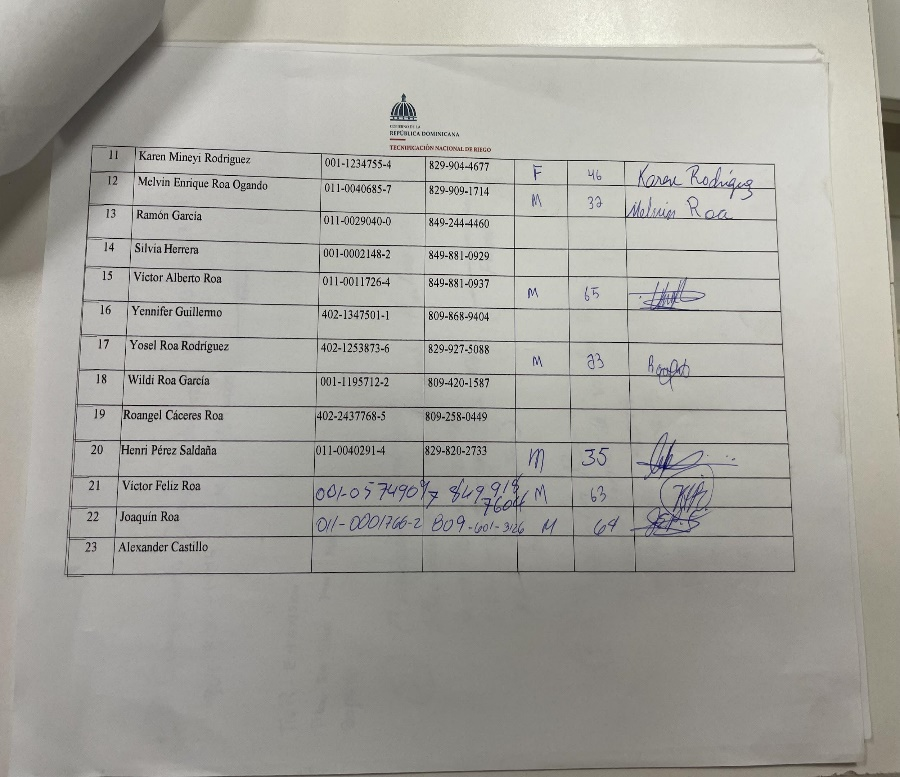 GOBIERNO DE LA
REPÚBLICA DOMINICANA
TECNIFICACIÓN NACIONAL DE RIEGO
11 Karen Mineyi Rodriguez 001-1234755-4 829-904-4677 F 46 Karen Rodríguez
12 Melvin Enrique Roa Ogando 011-0040685-7 829-909-1714 M 32 Melvin Roa
13 Ramón García 011-0029040-0 849-244-4460
14 Silvia Herrera 001-0002148-2 849-881-0929
15 Víctor Alberto Roa 011-0011726-4 849-881-0937 M 65
16 Yennifer Guillermo 402-1347501-1 809-868-9404
17 Yosel Roa Rodríguez 402-1253873-6 829-927-5088 M 23
18 Wildi Roa García 001-1195712-2 809-420-1587
19 Roangel Cáceres Roa 402-2437768-5 809-258-0449
20 Henri Pérez Saldaña 011-0040291-4 829-820-2733 M 35
21 Víctor Feliz Roa 849 918 7604 M 63
22 Joaquín Roa 011-0001766-2 809-601-3126 M 64
23 Alexander Castillo